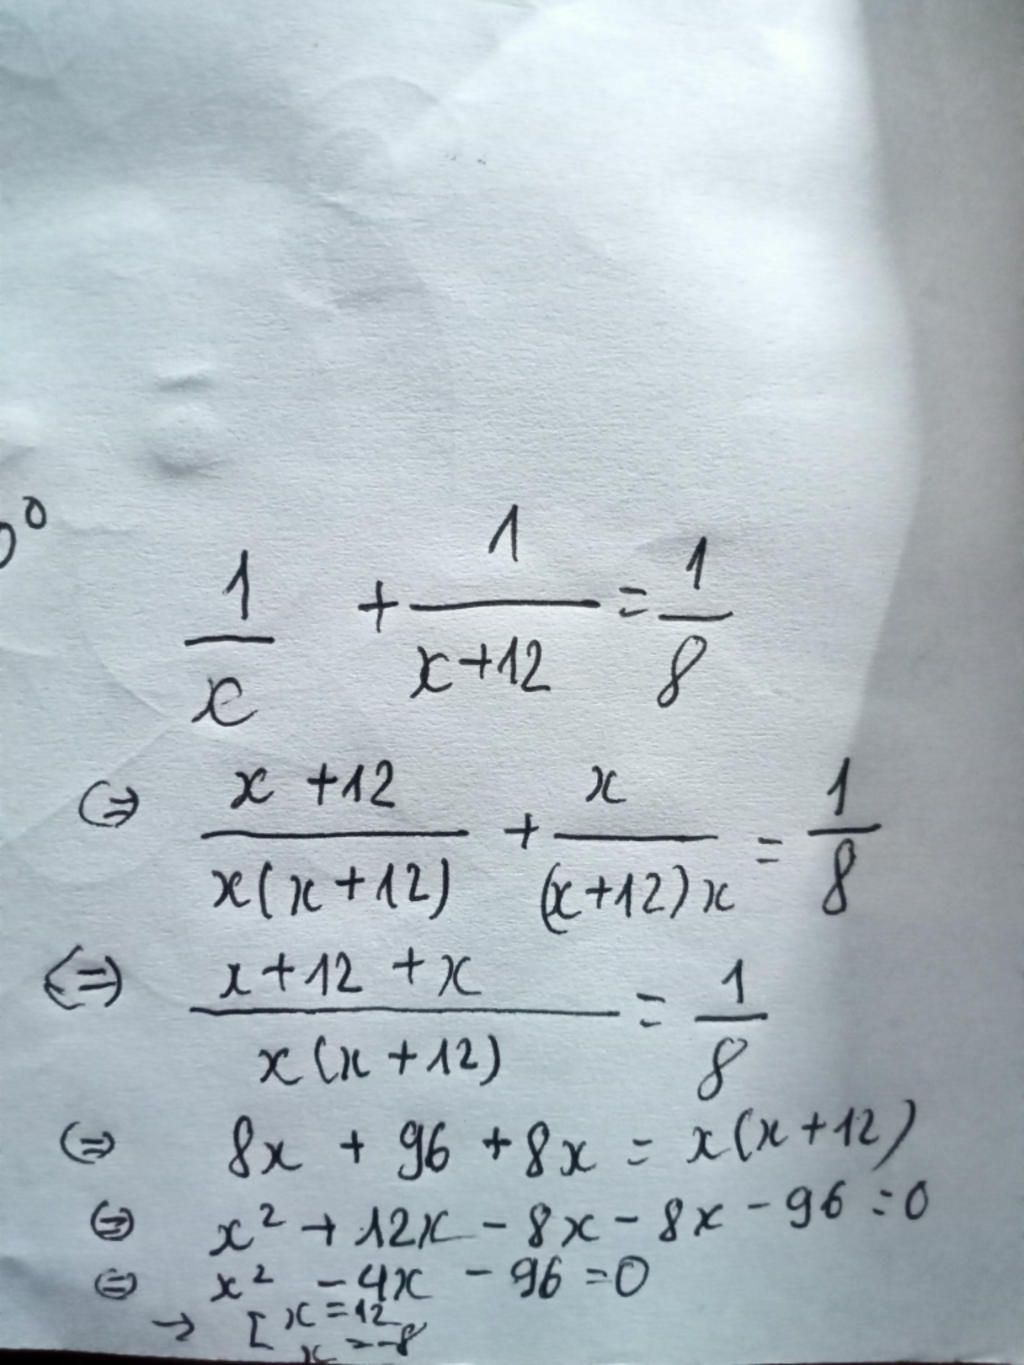 0°
1/x + 1/(x+12) = 1/8
(=) (x+12)/(x(x+12)) + x/((x+12)x) = 1/8
(=) (x+12+x)/(x(x+12)) = 1/8
(=) 8x + 96 + 8x = x(x+12)
(=) x² + 12x - 8x - 8x - 96 = 0
(=) x² - 4x - 96 = 0
→ [ x = 12
x = -8